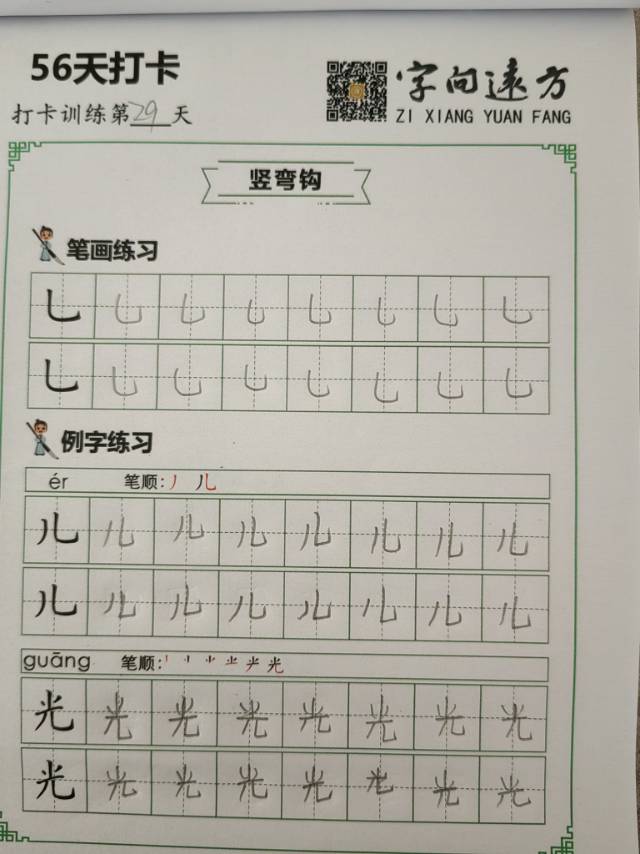 56天打卡
字向远方
打卡训练第29天
ZI XIANG YUAN FANG
竖弯钩
笔画练习
乚 乚 乚 乚 乚 乚 乚 乚
乚 乚 乚 乚 乚 乚 乚 乚
例字练习
ér 笔顺:丿 儿
儿 儿 儿 儿 儿 儿 儿 儿
儿 儿 儿 儿 儿 儿 儿 儿
guāng 笔顺:
光 光 光 光 光 光 光 光
光 光 光 光 光 光 光 光